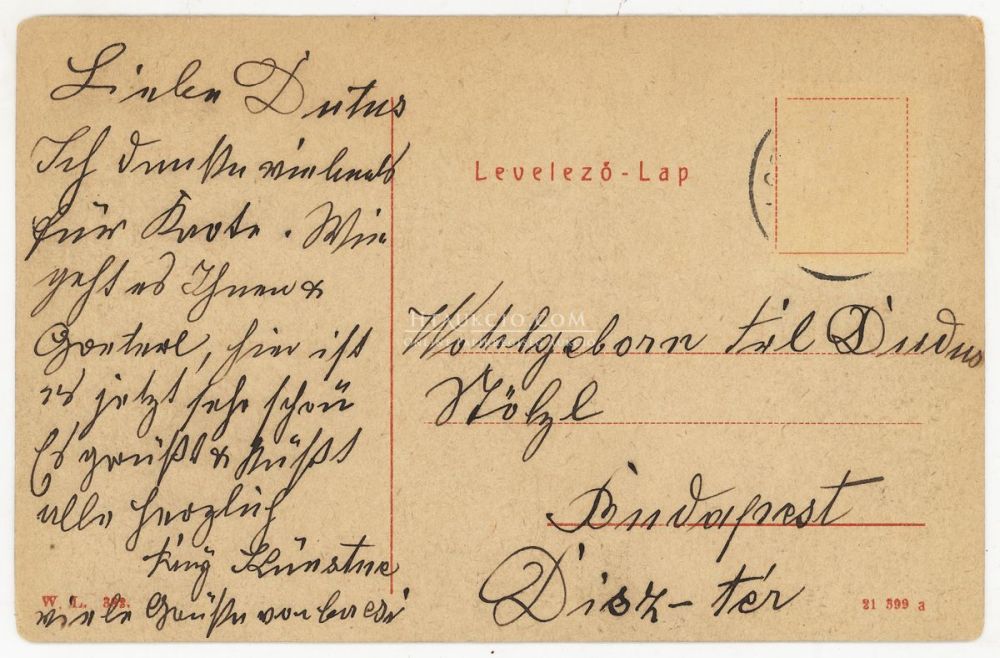 Liebe Dutus
Ich danke vielmals
für Karte. Wie
geht es Ihnen &
hier ist
es jetzt sehr schön
Es grüßt & küßt
alle herzlich
viele Grüße von
Levelező-Lap
Wohlgeborn Frl Dudus
Stölzl
Budapest
Disz-tér
W. L. 393.
21 399 a
HTAUKCIO.COM